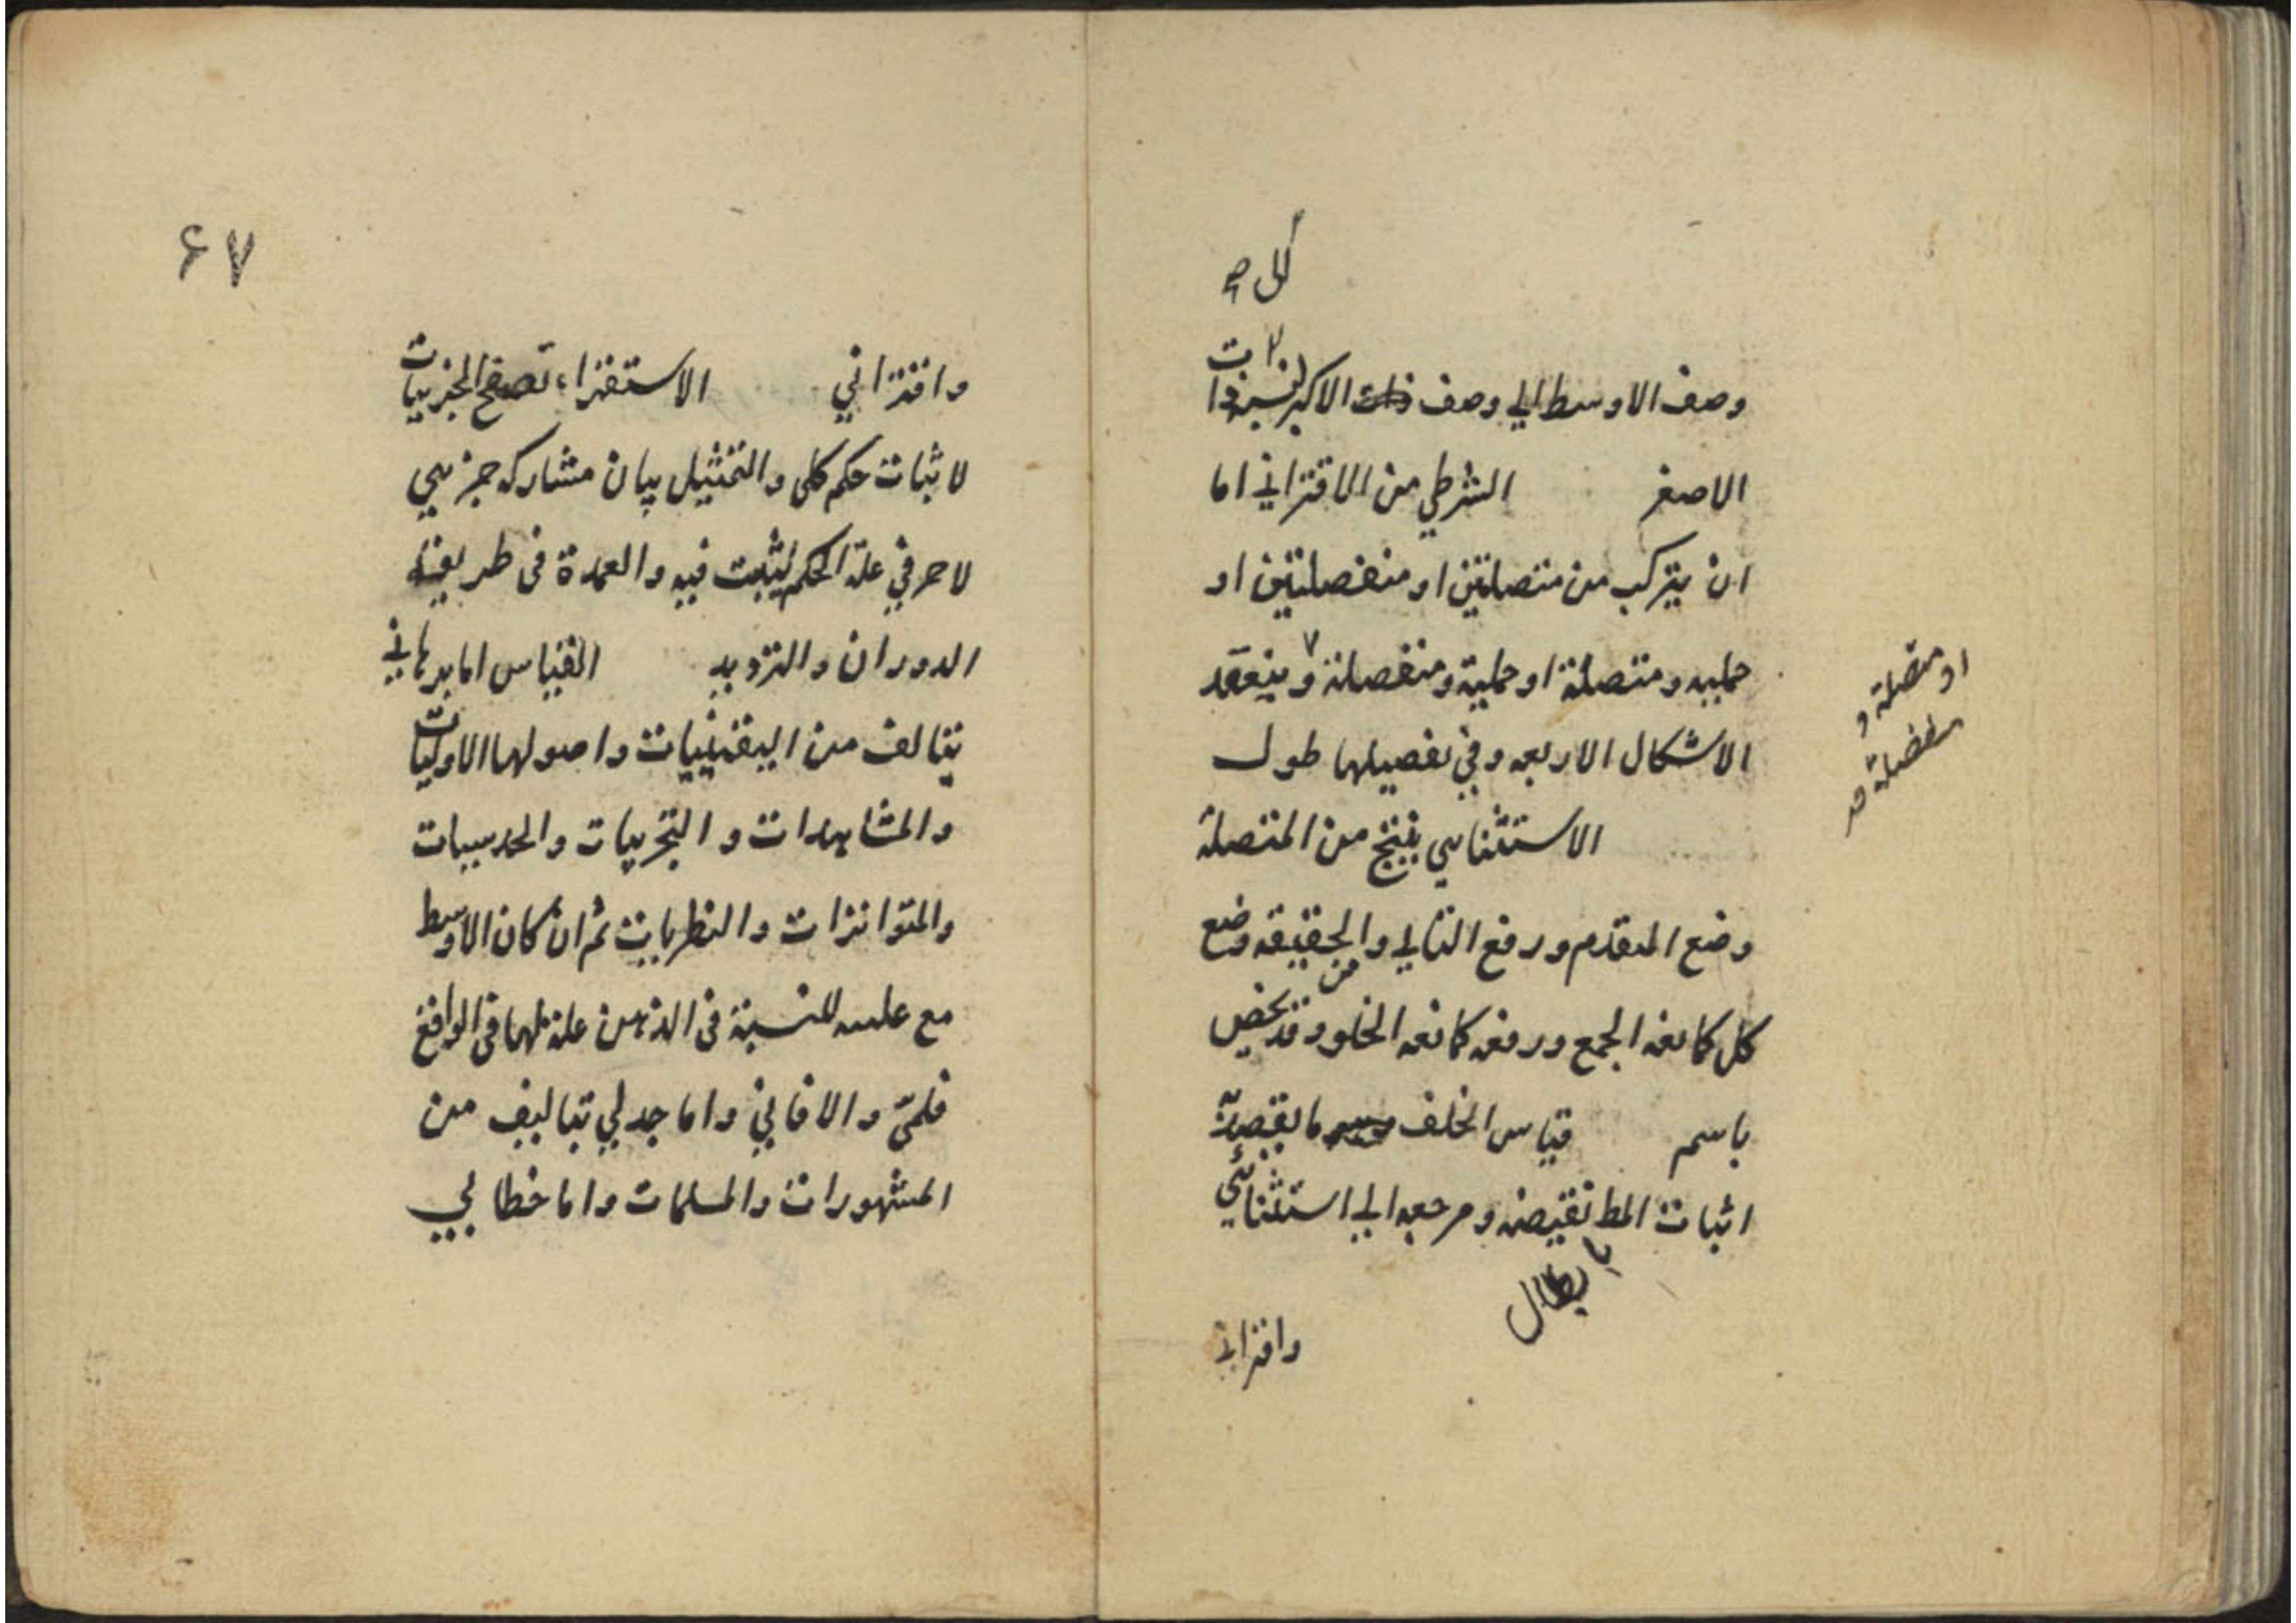 وصف الاوسط الي وصف ذات الاكبر لنسبة ذات
الاصغر الشرطي من الاقتراني اما
ان يتركب من متصلتين او منفصلتين او
حمليه ومتصلة او حملية ومنفصلة وينعقد
او متصلة و
منفصلة
الاشكال الاربعه وفي تفصيلها طول
الاستثنايي ينتج من المتصلة
وضع المقدم ورفع التالي والحقيقه وضع
كل كمانعه الجمع ورفعه كمانعه الخلو وقد يخص
من
باسم قياس الخلف ما يقصد به
اثبات المط نقيضه ومرجعه الي استثنائي
بابطال
واقتراني
۶۷
واقتراني الاستقراء تصفح الجزييات
لاثبات حكم كلي والتمثيل بيان مشاركه جزيي
لاخر في علة الحكم ليثبت فيه والعمدة في طريقه
الدوران والترديد القياس اما برهاني
يتالف من اليقينيات واصولها الاوليات
والمشاهدات والتجربيات والحدسيات
والمتواترات والنظريات ثم ان كان الاوسط
مع عليته للنسبة في الذهن علة لها في الواقع
فلمي والا فاني واما جدلي يتاليف من
المشهورات والمسلمات واما خطابي